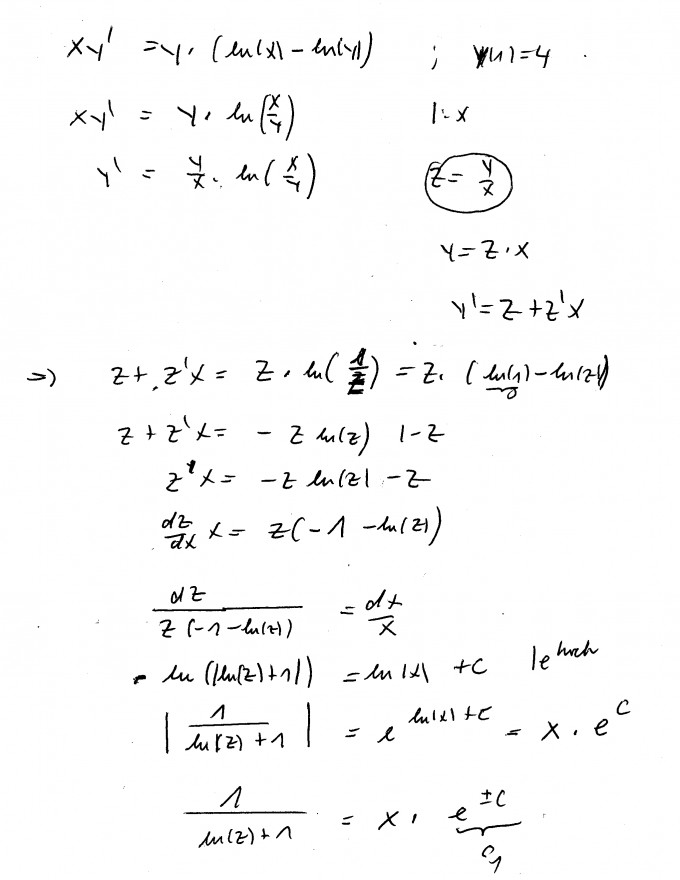 xy' = y · (ln(x) − ln(y)) ; y(1)=4
xy' = y · ln(x/y) |:x
y' = y/x · ln(x/y) z = y/x
y = z·x
y' = z + z'x
=> z + z'x = z · ln(1/z) = z · (ln(1) − ln(z))
0
z + z'x = − z ln(z) |−z
z'x = −z ln(z) − z
dz/dx x = z(−1 − ln(z))
dz / z(−1−ln(z)) = dx/x
− ln(|ln(z)+1|) = ln|x| + c |e hoch
|1/(ln(z)+1)| = e^(ln|x|+c) = x · e^c
1/(ln(z)+1) = x · e^(±c)
c₁